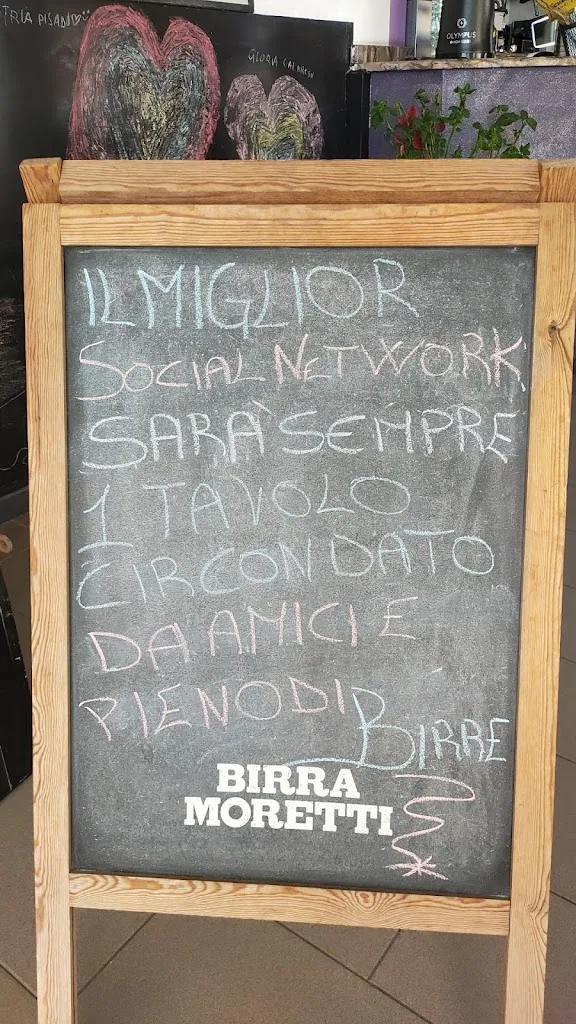 GLORIA
OLYMPUS
IL MIGLIOR
SOCIAL NETWORK
SARÀ SEMPRE
1 TAVOLO
CIRCONDATO
DA AMICI E
PIENO DI BIRRE
BIRRA
MORETTI